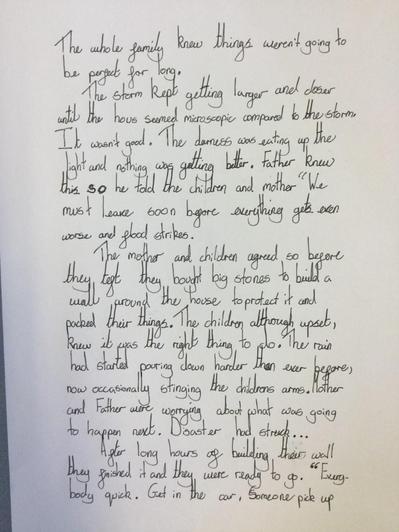 The whole family knew things weren't going to
be perfect for long.
The storm kept getting larger and closer
until the hous seemed microscopic compared to the storm.
It wasn't good. The darness was eating up the
light and nothing was getting better. Father knew
this so he told the children and mother "We
must leave soon before everything gets even
worse and flood strikes.
The mother and children agreed so before
they left they bought big stones to build a
wall around the house to protect it and
packed their things. The children although upset,
knew it was the right thing to do. The rain
had started pouring down harder than ever before,
now occasionally stinging the childrens arms. Mother
and Father were worrying about what was going
to happen next. Disaster had struck...
After long hours of building their wall
they finished it and they were ready to go. "Every-
body quick. Get in the car. Someone pick up